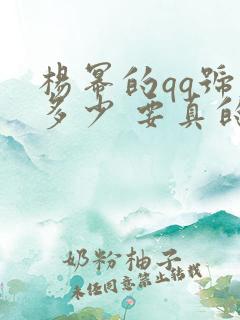 楊冪的qq號
多少 要真的
奶粉柚子
未经同意禁止转载